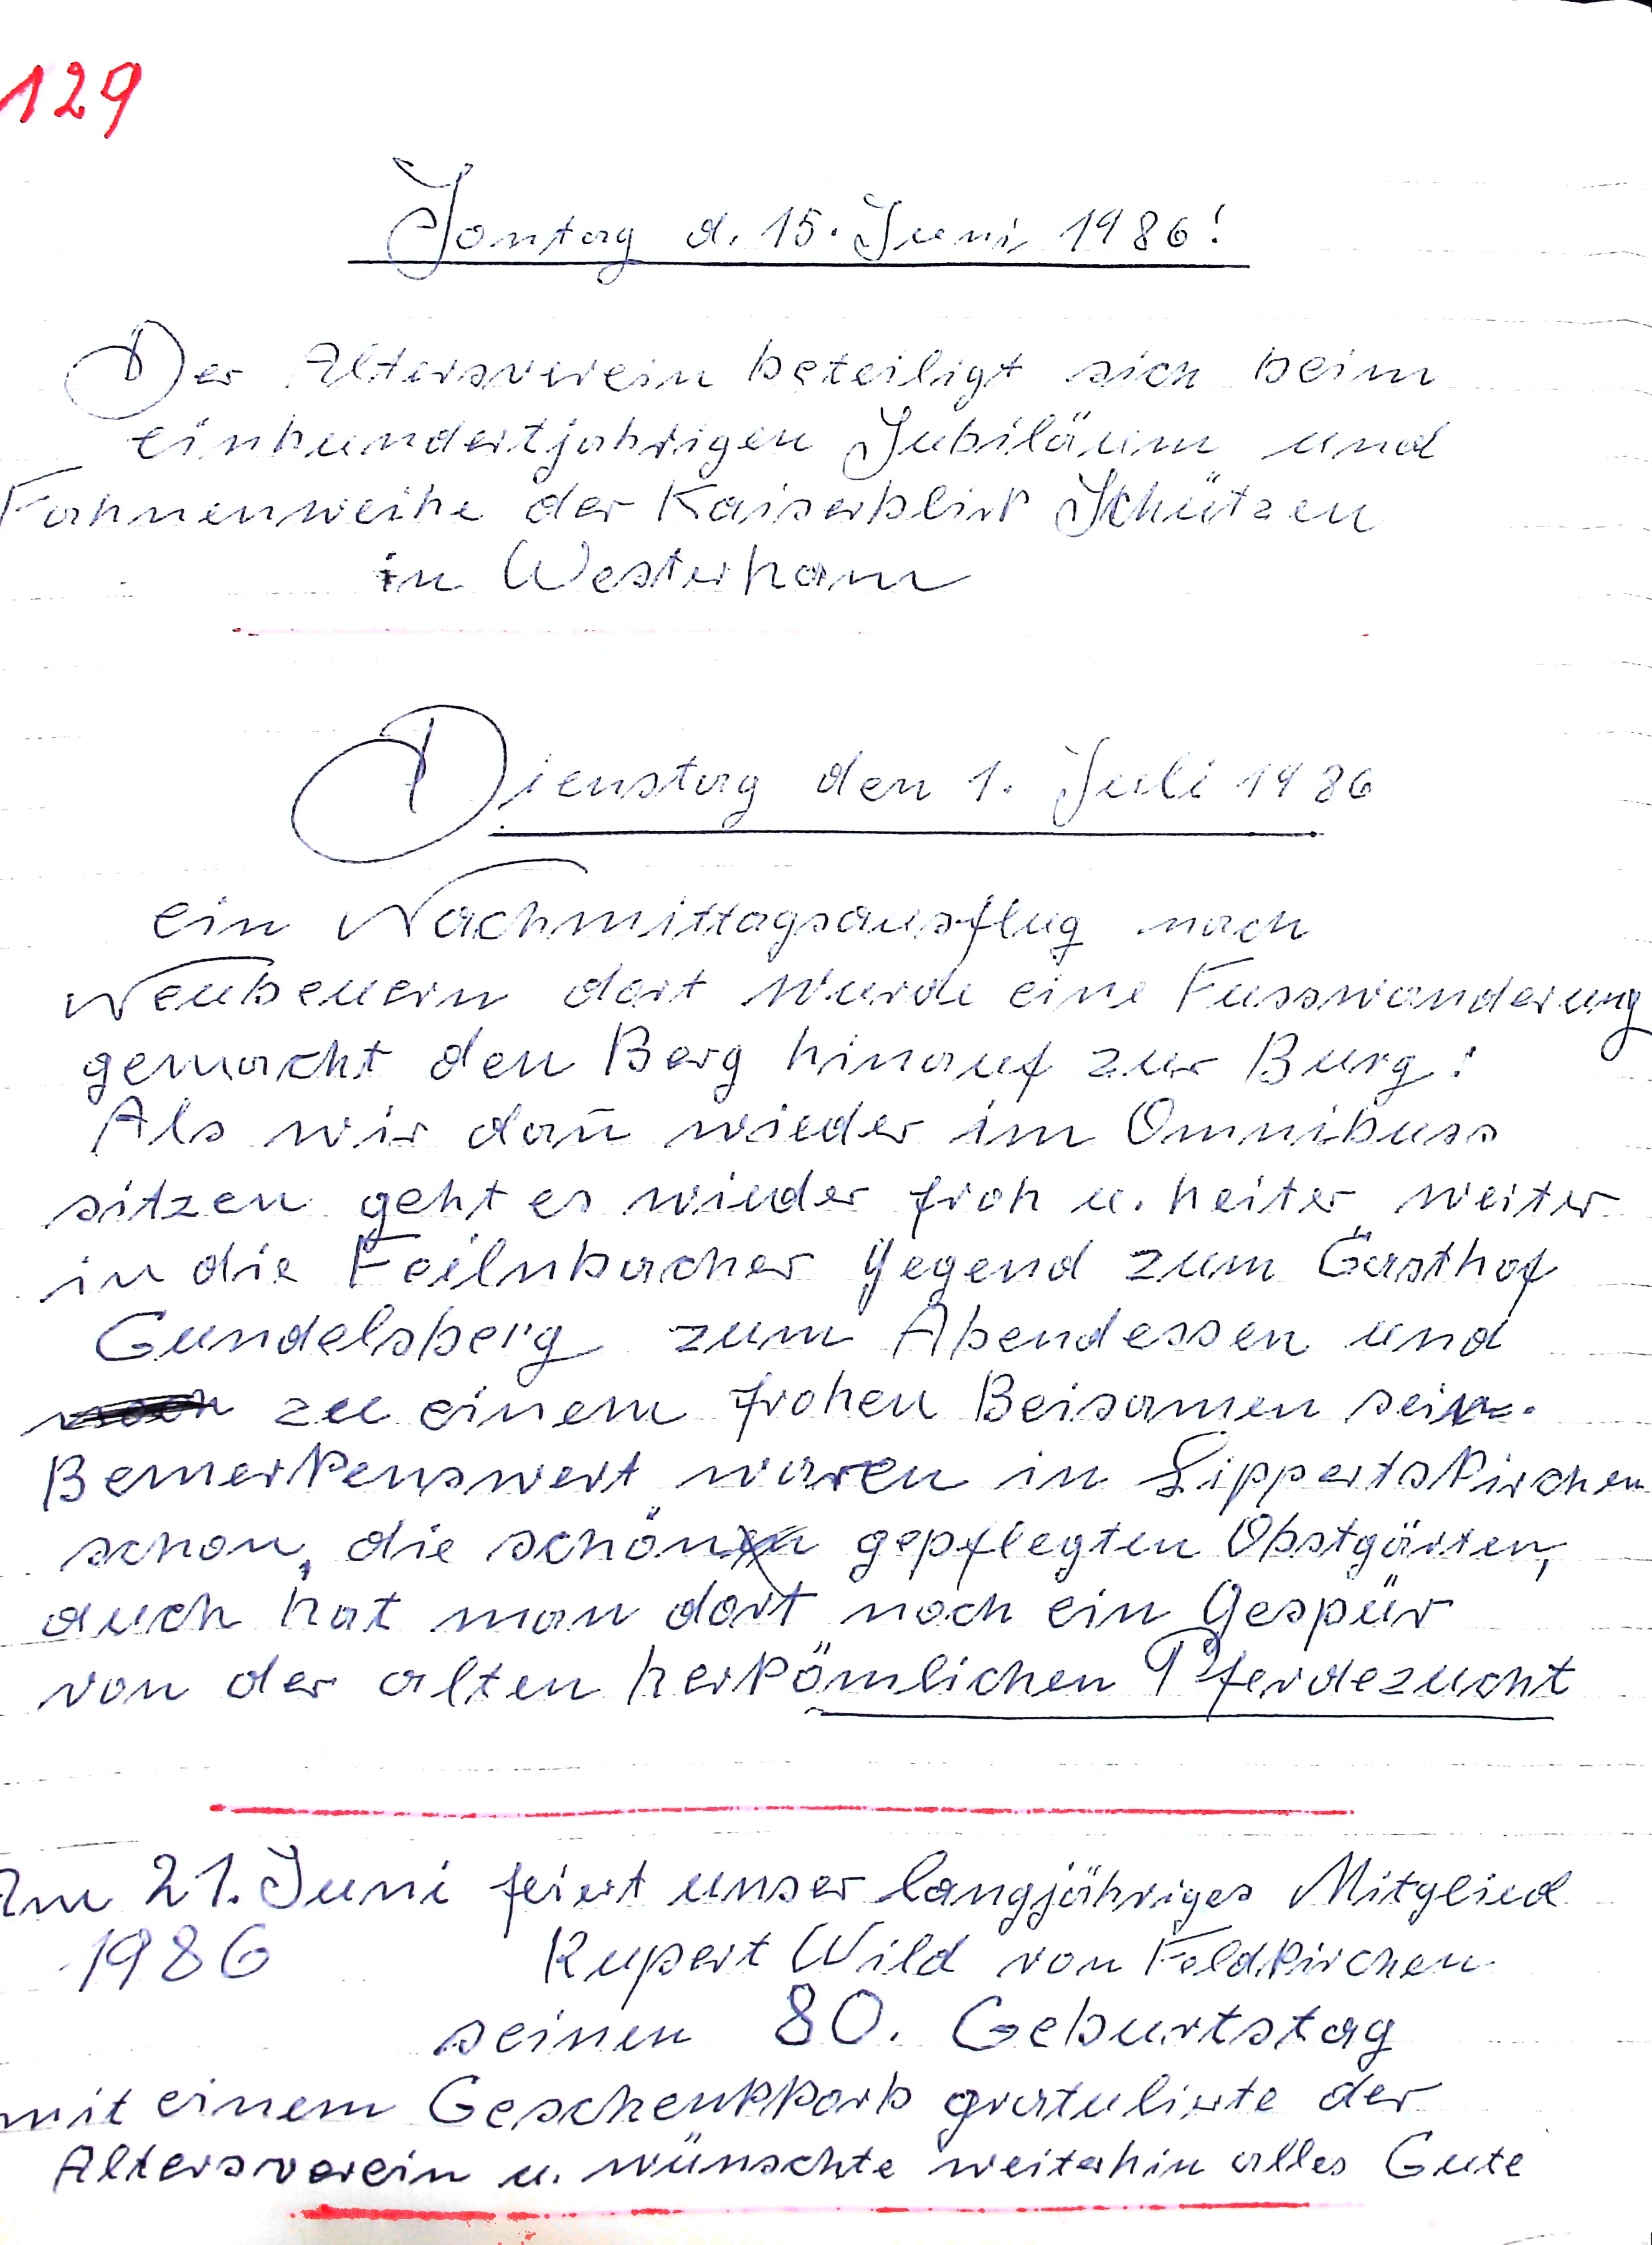 129
Sontag d. 15. Juni 1986!
Der Altersverein beteiligt sich beim
einhundertjahrigen Jubiläum und
Fahnenweihe der Kaiserblick Schützen
in Westerham
Dienstag den 1. Juli 1986
ein Nachmittagsausflug nach
Neubeuern dort wurde eine Fusswanderung
gemacht den Berg hinauf zur Burg!
Als wir dan̄ wieder im Omnibuss
sitzen geht es wieder froh u. heiter weiter
in die Feilnbacher Gegend zum Gasthof
Gundelsberg zum Abendessen und
zu einem frohen Beisamen sein.
Bemerkenswert waren in Lippertskirchen
schon, die schön gepflegten Obstgärten,
auch hat man dort noch ein Gespür
von der alten herkömlichen Pferdezucht
Am 21. Juni feiert unser langjähriges Mitglied
1986 Rupert Wild von Feldkirchen
seinen 80. Geburtstag
mit einem Geschenkkorb gratulierte der
Altersverein u. wünschte weiterhin alles Gute